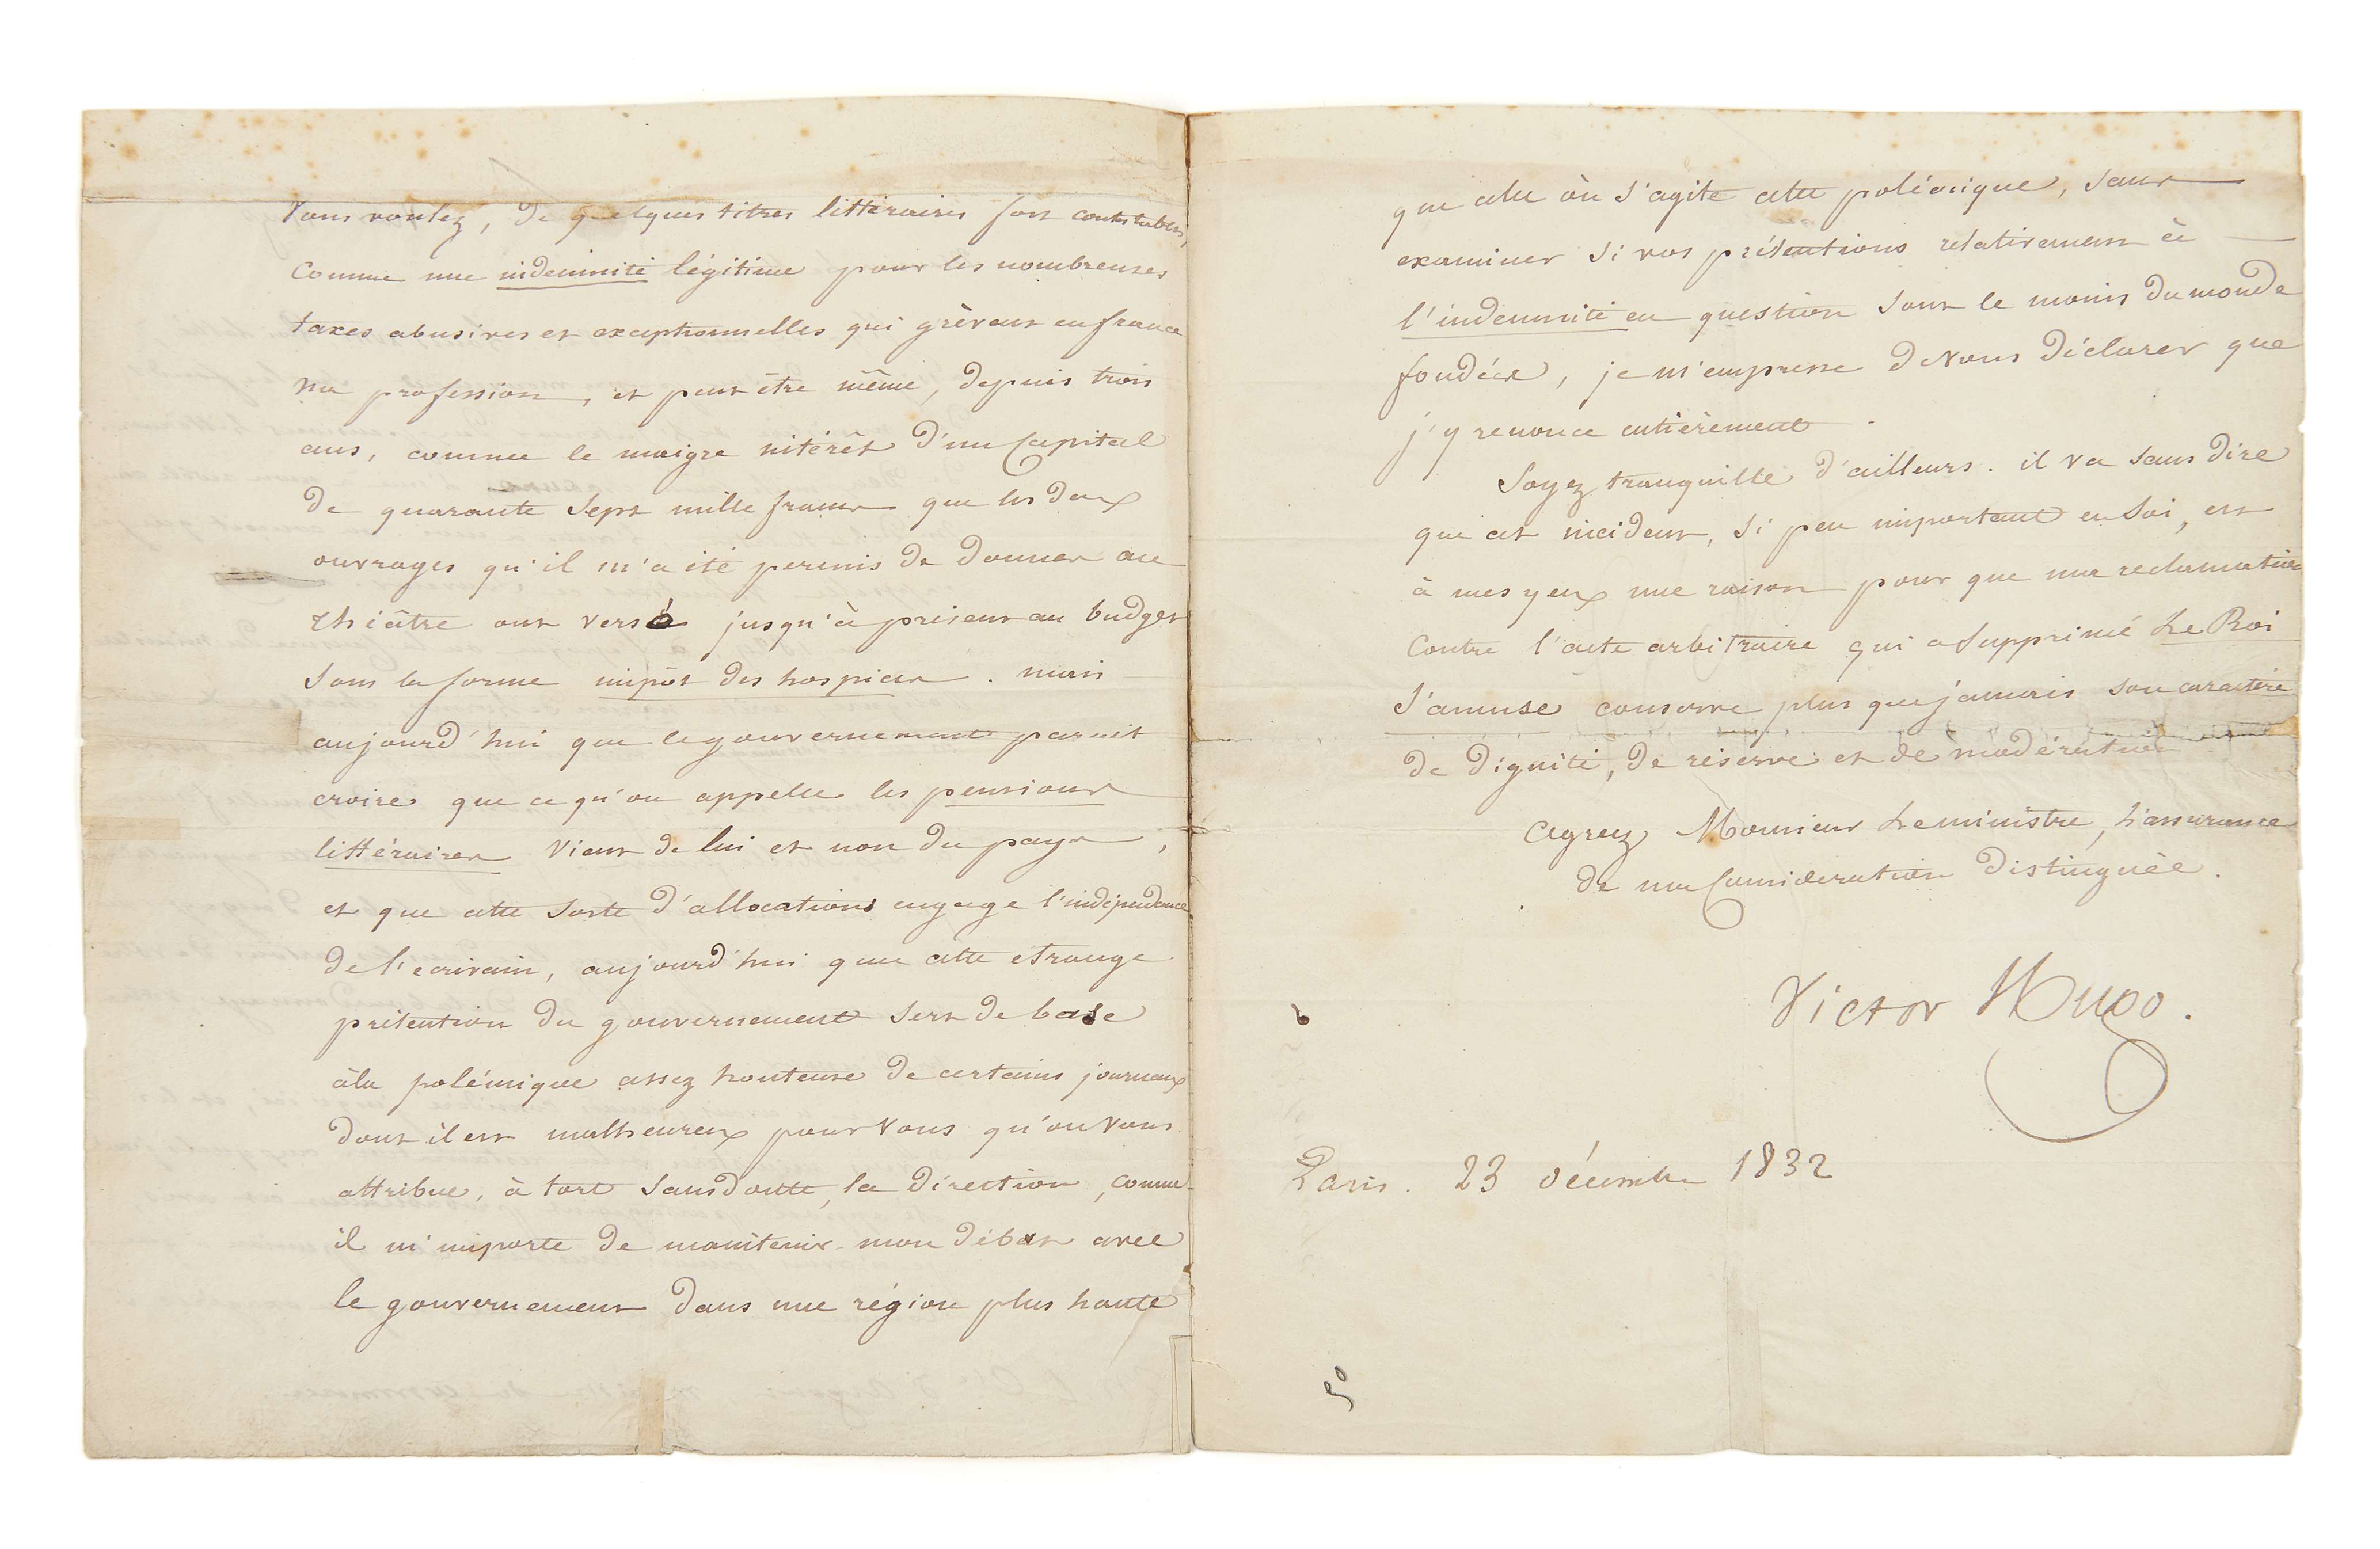 Vous voulez, de quelques titres littéraires fort contestables,
comme une indemnité légitime pour les nombreuses
taxes abusives et exceptionnelles qui grèvent en france
ma profession, et peut être même, depuis trois
ans, comme le maigre intérêt d'un Capital
de quarante sept mille francs que les deux
ouvrages qu'il m'a été permis de donner au
théâtre ont versé jusqu'à présent au budget
sous la forme impôt des hospices. mais
aujourd'hui que le gouvernement parait
croire que ce qu'on appelle les pensions
littéraires vient de lui et non du pays,
et que cette sorte d'allocations engage l'indépendance
de l'ecrivain, aujourd'hui que cette etrange
prétention du gouvernement sert de base
à la polémique assez honteuse de certains journaux
dont il est malheureux pour vous qu'on vous
attribue, à tort sans doute, la direction, comme
il m'importe de maintenir mon débat avec
le gouvernement dans une région plus haute
que celle où s'agite cette polémique, sans
examiner si vos prétentions relativement à
l'indemnité en question sont le moins du monde
fondées, je m'empresse de vous déclarer que
j'y renonce entièrement.
Soyez tranquille d'ailleurs. il va sans dire
que cet incident, si peu important en soi, est
à mes yeux une raison pour que ma reclamation
Contre l'acte arbitraire qui a supprimé Le Roi
s'amuse conserve plus que jamais son caractère
de dignité, de réserve et de modération
Agreez Monsieur Le ministre, l'assurance
de ma Consideration distinguée.
Victor Hugo.
Paris. 23 décembre 1832